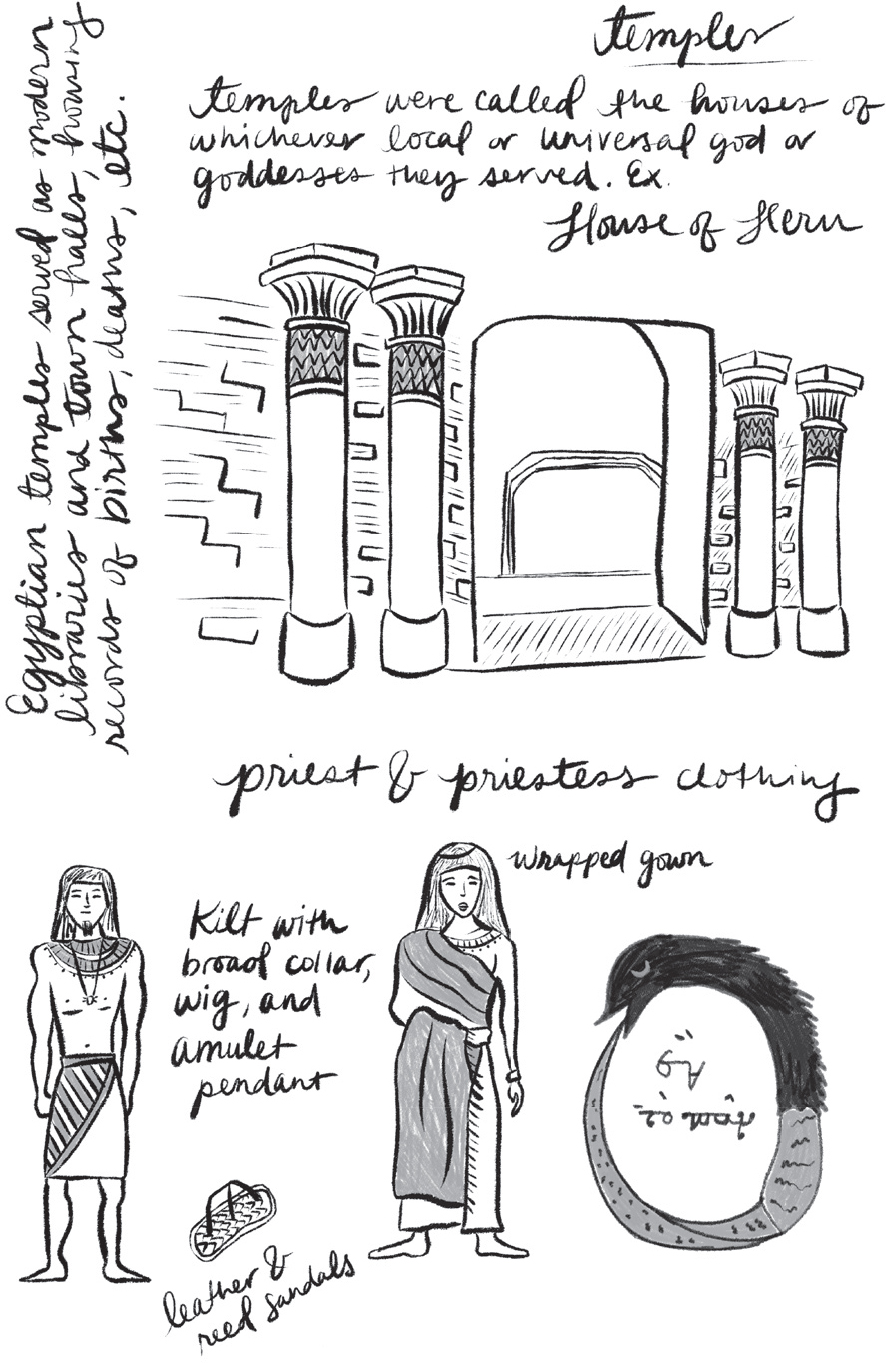 temples
temples were called the houses of
whichever local or universal god or
goddesses they served. Ex.
House of Heru
Egyptian temples served as modern
libraries and town halls, housing
records of births, deaths, etc.
priest & priestess clothing
wrapped gown
Kilt with
broad collar,
wig, and
amulet
pendant
leather &
reed sandals